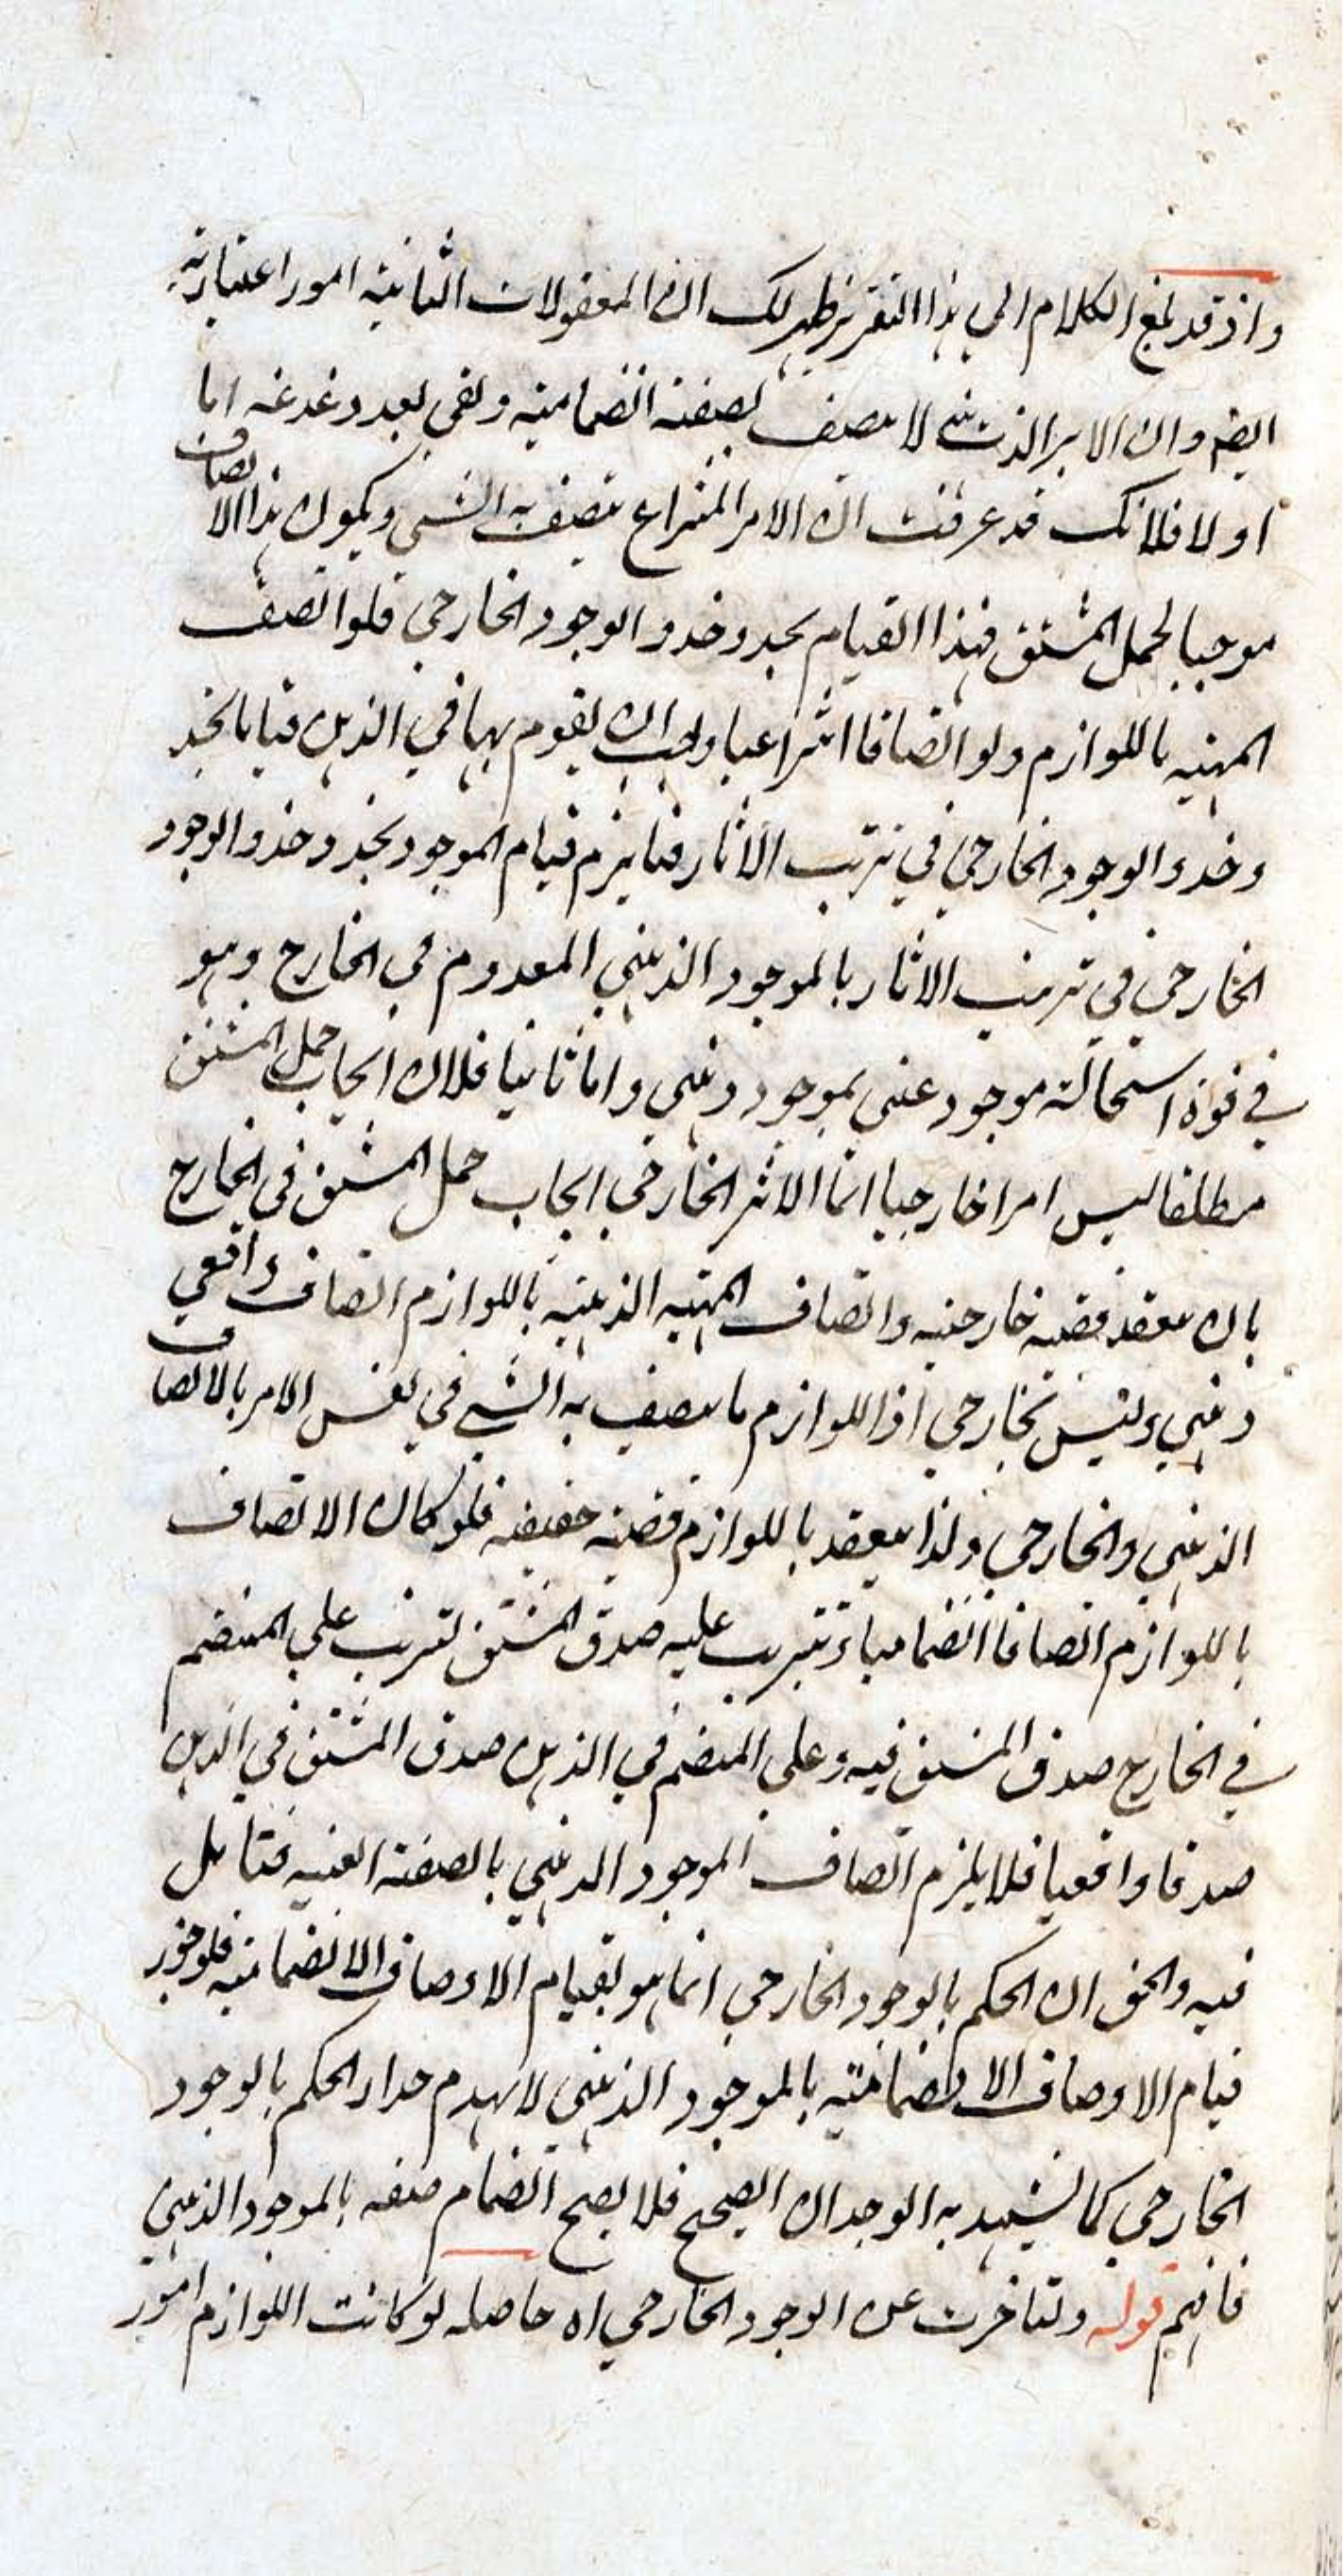 واذ قد بلغ الكلام الى هذا التقرير ظهر لك ان المعقولات الثانية امور اعتبارية
ايضا وان الامر الذهني لا يتصف بصفة انضمامية وبقي بعد دغدغة اما
اولا فلانك قد عرفت ان الامر المنتزع يتصف به الشي ويكون هذا الاتصاف
موجبا لحمل المشتق فهذا القيام يحذو حذو الوجود الخارجي فلو اتصف
المهية باللوازم ولو اتصافا انتزاعيا وجب ان يقوم بها في الذهن قياما يحذ
و حذو الوجود الخارجي في ترتب الاثار فيلزم قيام الموجود يحذو حذو الوجود
الخارجي في ترتب الاثار بالموجود الذهني المعدوم في الخارج وهو
في قوة استحالة موجود عيني بموجود ذهني واما ثانيا فلان ايجاب حمل المشتق
مطلقا ليس امرا خارجيا انما الاثر الخارجي ايجاب حمل المشتق في الخارج
بان يعقد قضية خارجية واتصاف المهية الذهنية باللوازم اتصاف واقعي
ذهني وليس بخارجي اذ اللوازم ما يتصف به الشي في نفس الامر بالاتصاف
الذهني والخارجي ولذا يعقد باللوازم قضية حقيقية فلو كان الاتصاف
باللوازم اتصافا انضماميا وترتب عليه صدق المشتق لترتب على المنضم
في الخارج صدق المشتق فيه وعلى المنضم في الذهن صدق المشتق في الذهن
صدقا واقعيا فلا يلزم اتصاف الموجود الذهني بالصفة العينية فتامل
فيه والحق ان الحكم بالوجود الخارجي انما هو بقيام الاوصاف الانضمامية فلو جوز
قيام الاوصاف الانضمامية بالموجود الذهني لانهدم مدار الحكم بالوجود
الخارجي كما يشهد به الوجدان الصحيح فلا يصح انضمام صفة بالموجود الذهني
فافهم قوله ولتاخرت عن الوجود الخارجي اه حاصله لو كانت اللوازم امور